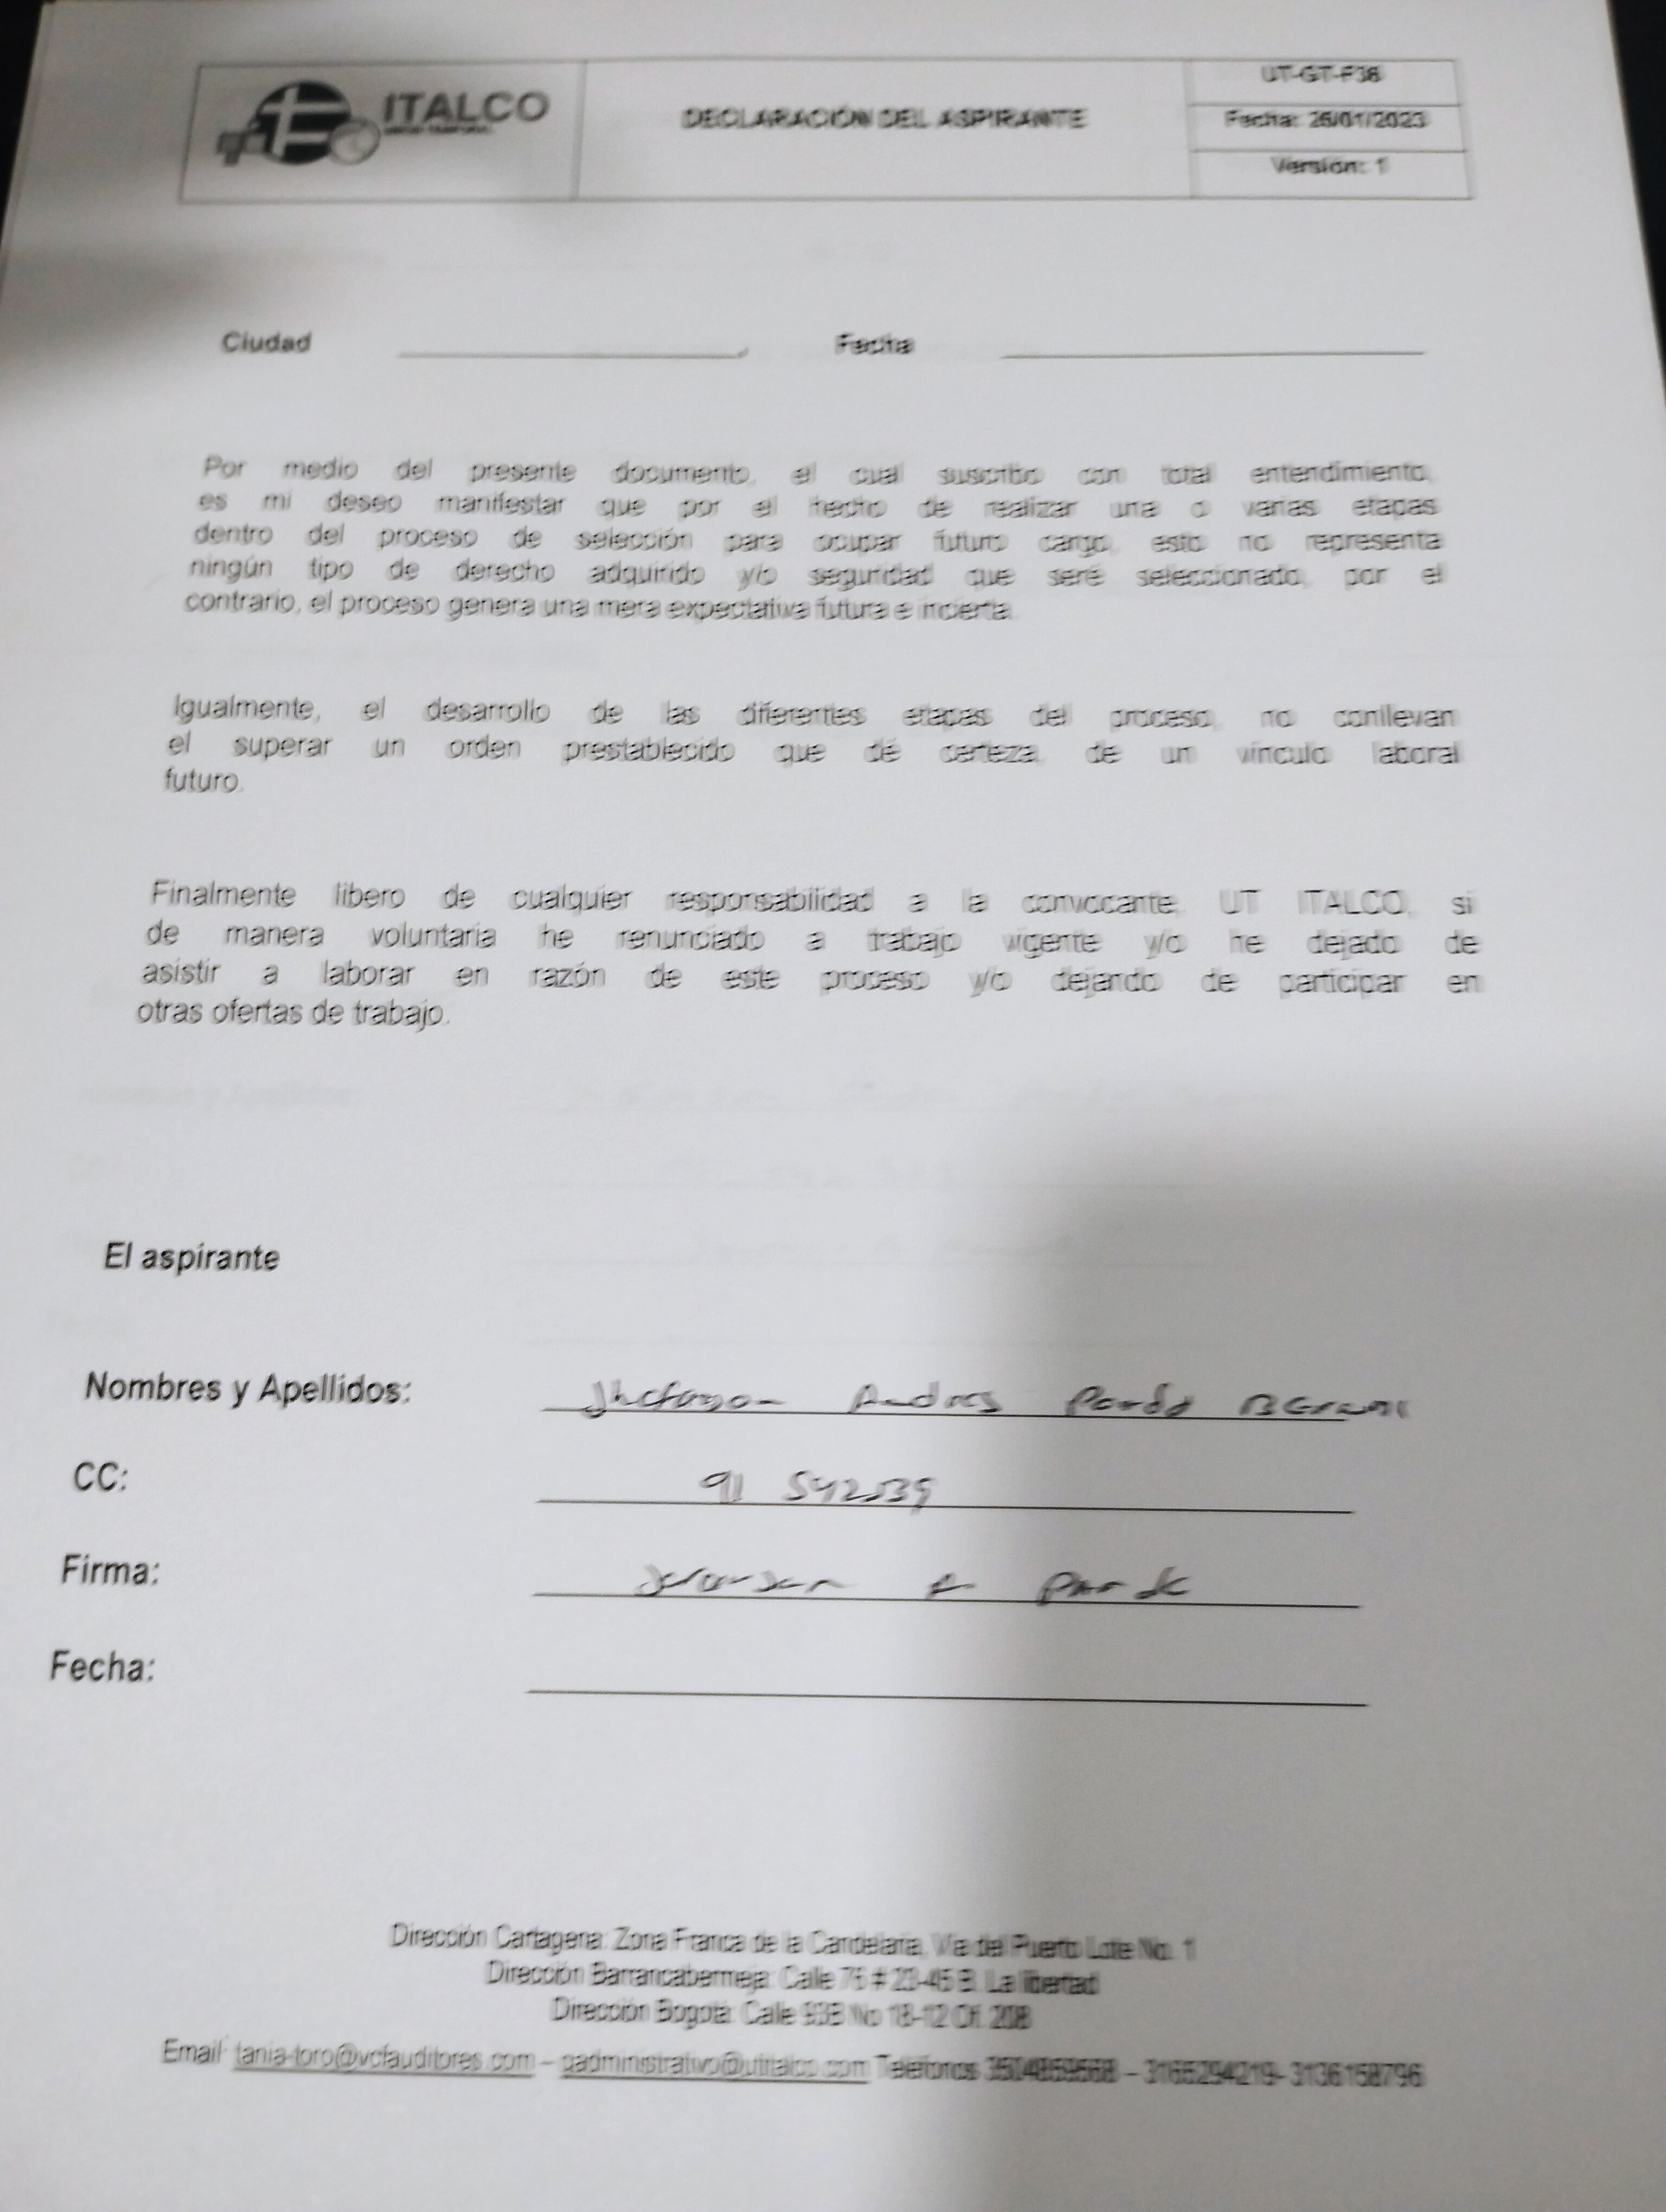 ITALCO
DECLARACIÓN DEL ASPIRANTE
UT-GT-F38
Fecha: 26/01/2023
Versión: 1
Ciudad , Fecha
Por medio del presente documento, el cual suscribo con total entendimiento,
es mi deseo manifestar que por el hecho de realizar una o varias etapas
dentro del proceso de selección para ocupar futuro cargo, esto no representa
ningún tipo de derecho adquirido y/o seguridad que seré seleccionado, por el
contrario, el proceso genera una mera expectativa futura e incierta.
Igualmente, el desarrollo de las diferentes etapas del proceso, no conllevan
el superar un orden prestablecido que dé certeza de un vínculo laboral
futuro.
Finalmente libero de cualquier responsabilidad a la convocante UT ITALCO, si
de manera voluntaria he renunciado a trabajo vigente y/o he dejado de
asistir a laborar en razón de este proceso y/o dejando de participar en
otras ofertas de trabajo.
El aspirante
Nombres y Apellidos: Andres Pardo
CC: 91 542539
Firma:
Fecha:
Dirección Cartagena: Zona Franca de la Candelaria, Vía del Puerto Lote No. 1
Dirección Barrancabermeja: Calle 76 # 20-45 B. La libertad
Dirección Bogotá: Calle 93B No 18-12 Of. 208
Email: tania-toro@vcfauditores.com – gadministrativo@utitalco.com Teléfonos – 3165294219- 3136158796